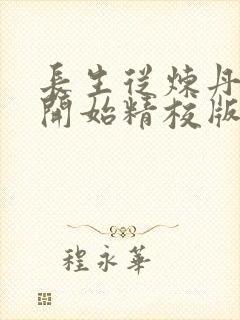 長生從煉丹
開始精校版
程永華